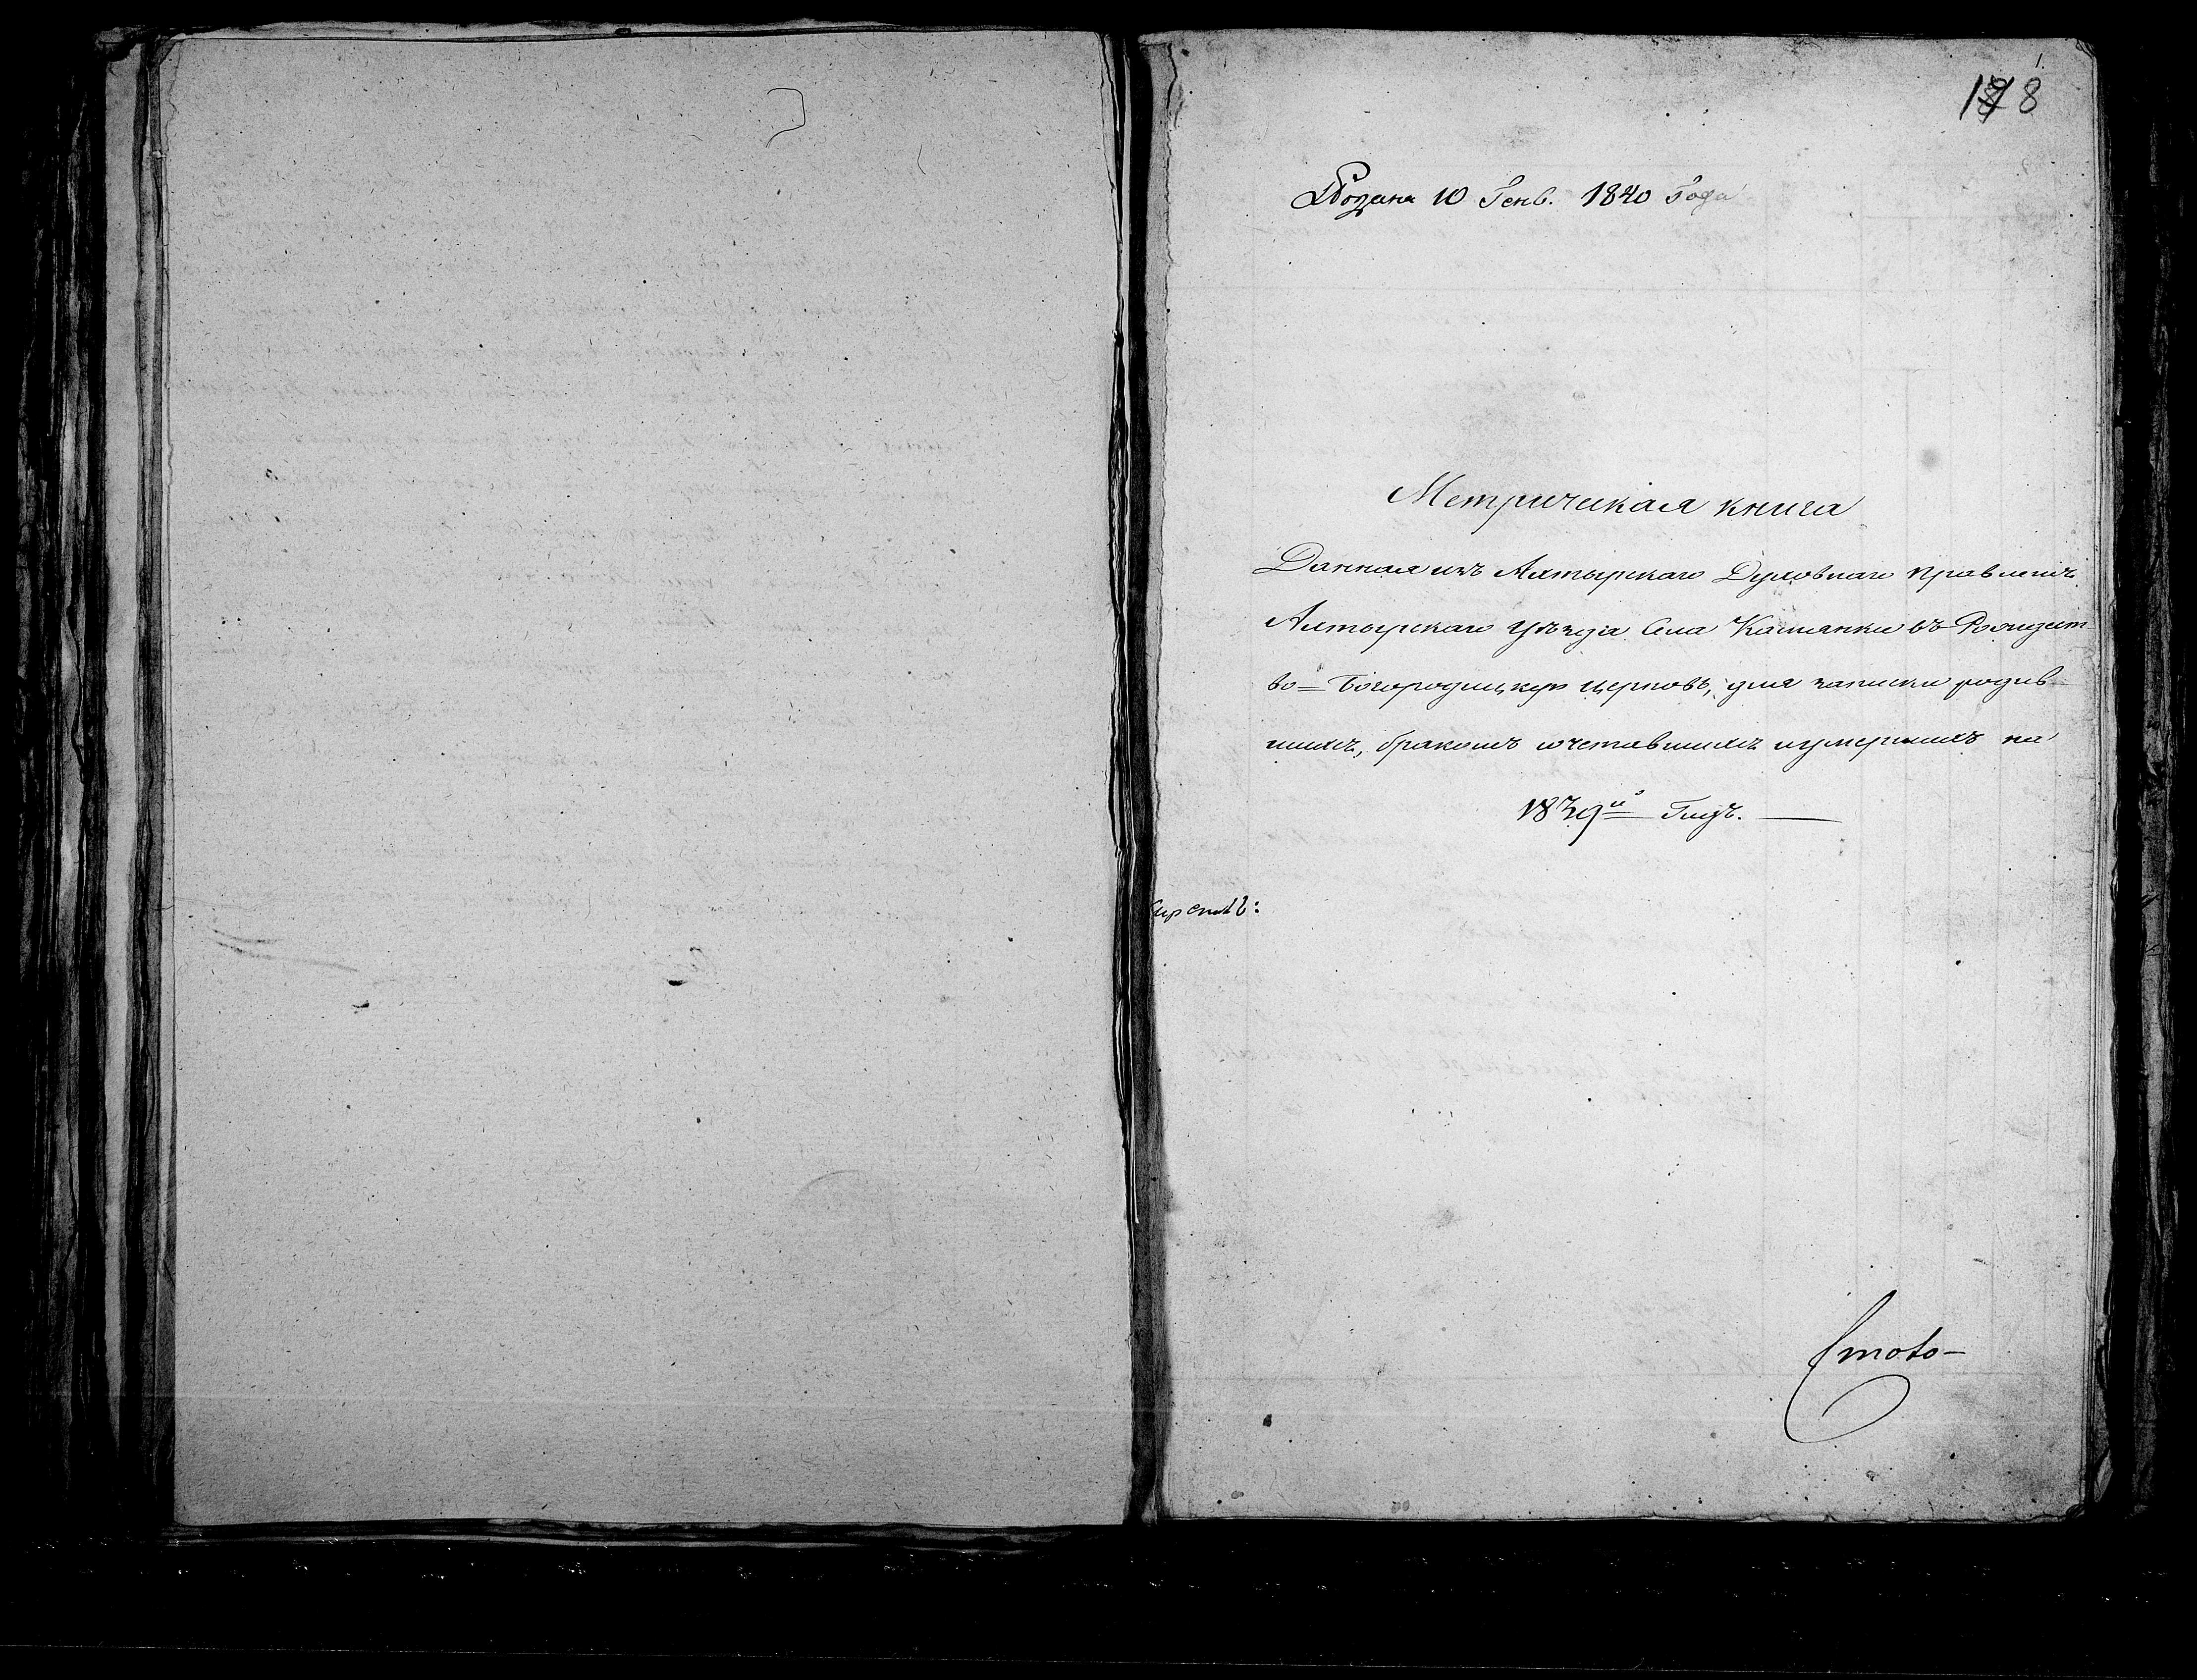 1.
178
Подана 10 Генв. 1840 Года
Метрическая книга
Данная изъ Ахтырскаго Духовнаго правленія
Ахтырскаго Уѣзда Села Каменки въ Рождест
во=Богородицкую церковь, для записки родив
шихъ, бракомъ сочетавшихъ и умершихъ на
1839й Годъ.